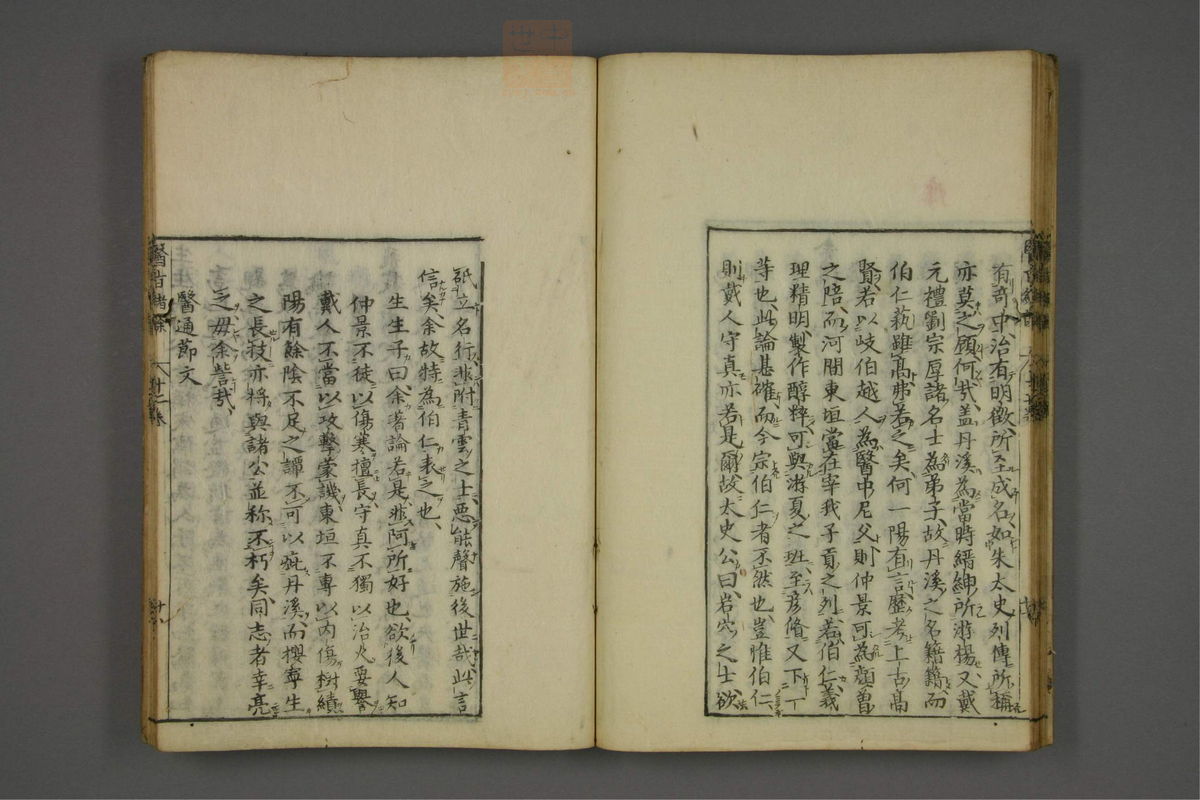 有奇中治有明徵所至成名如朱太史列傳所稱
亦莫之顧何哉蓋丹溪為當時縉紳所游揚又戴
元禮劉宗厚諸名士為弟子故丹溪之名籍籍而
伯仁蓺雖高弗若之矣何一陽有言歷考上古高
賢若以岐伯越人為醫中尼父則仲景可為顏曾
之陪而河間東垣當在宰我子貢之列若伯仁義
理精明製作醇粹可與游夏之班至彥脩又下一
等也此論甚確而今宗伯仁者不然也豈惟伯仁
則戴人守真亦若是爾故太史公曰岩穴之士欲
砥立名行非附青雲之士惡能聲施後世哉此言
信矣余故特為伯仁表之也
生生子曰余著論若是非阿所好也欲後人知
仲景不徒以傷寒擅長守真不獨以治火要譽
戴人不當以攻擊蒙譏東垣不專以內傷樹績
陽有餘陰不足之譚不可以疵丹溪而攖寧生
之長技亦將與諸公並称不朽矣同志者幸亮
之毋余訾哉
醫通節文
醫旨緒餘